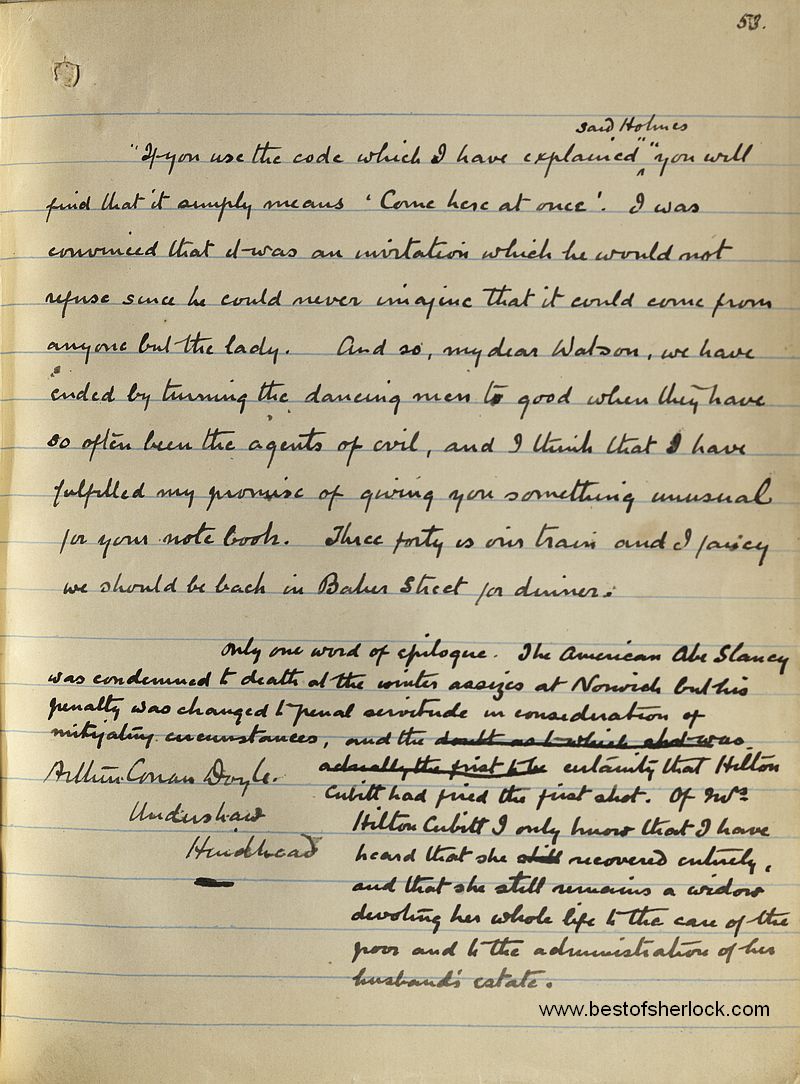 53.
said Holmes
"If you use the code which I have explained" "you will
find that it simply means 'Come here at once'. I was
convinced that it was an invitation which he would not
refuse since he could never imagine that it could come from
anyone but the lady. And so, my dear Watson, we have
ended by turning the dancing men to good when they have
so often been the agents of evil, and I think that I have
fulfilled my promise of giving you something unusual
for your note book. Three forty is our train and I fancy
we should be back in Baker Street for dinner.
Only one word of epilogue. The American Abe Slaney
was condemned to death at the winter assizes at Norwich but his
penalty was changed to penal servitude in consideration of
mitigating circumstances, and the doubt as to which shot was
actually the first to be certainty that Hilton
Cubitt had fired the first shot. Of Mrs
Hilton Cubitt I only know that I have
heard that she still recovered entirely,
and that she still remains a widow
devoting her whole life to the care of the
poor and to the administration of her
husband's estate.
Arthur Conan Doyle.
Undershaw
Hindhead
www.bestofsherlock.com